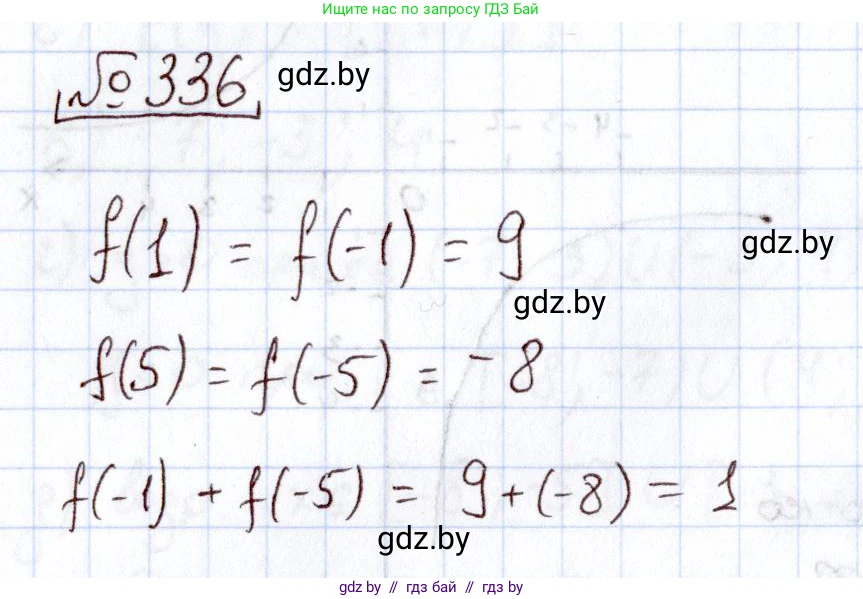 Ищите нас по запросу ГДЗ Бай
№ 336 gdz.by
f(1) = f(-1) = 9 gdz.by
gdz.by
f(5) = f(-5) = -8
f(-1) + f(-5) = 9 + (-8) = 1
gdz.by
gdz.by // гдз бай // гдз by